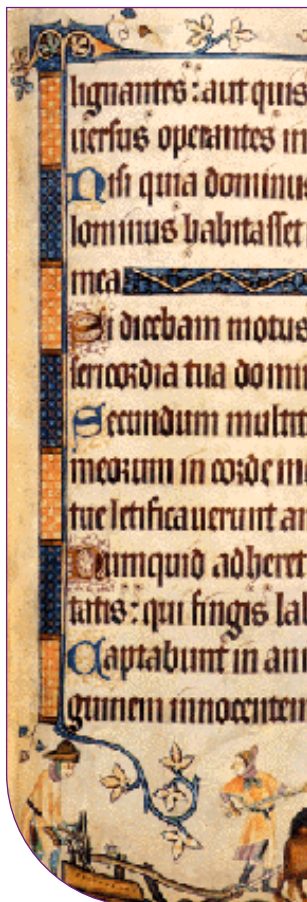 lignantes : aut quis
uersus operantes in
Nisi quia dominus
lominus habitasset
mea
Si dicebam motus
sericordia tua domi
Secundum multit
meorum in corde me
tue letificauerunt an
Numquid adheret
tatis : qui fingis lab
Captabunt in ani
guinem innocentem